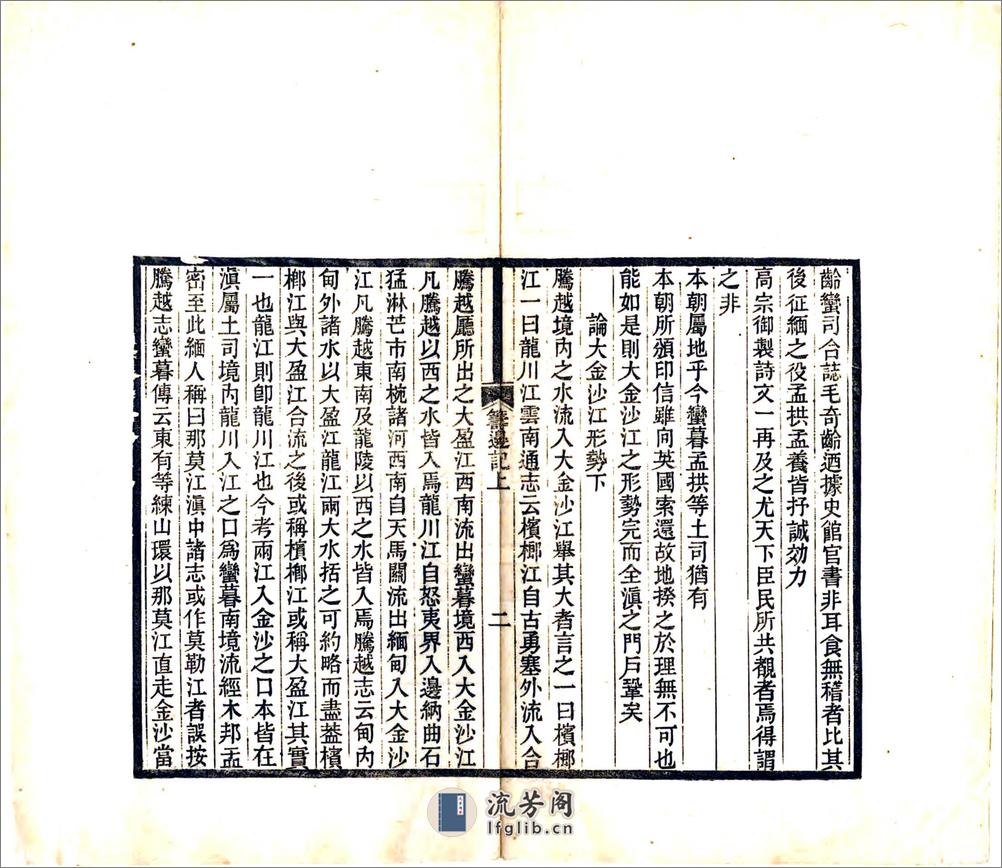 齡蠻司合誌毛奇齡迺據史館官書非耳食無稽者比其
後征緬之役孟拱孟養皆抒誠効力
高宗御製詩文一再及之尤天下臣民所共覩者焉得謂
之非
本朝屬地乎今蠻暮孟拱等土司猶有
本朝所頒印信雖向英國索還故地揆之於理無不可也
能如是則大金沙江之形勢完而全滇之門戶鞏矣
論大金沙江形勢下
騰越境內之水流入大金沙江舉其大者言之一曰檳榔
江一曰龍川江雲南通志云檳榔江自古勇塞外流入合
籌邊記上
二
騰越廳所出之大盈江西南流出蠻暮境西入大金沙江
凡騰越以西之水皆入焉龍川江自怒夷界入邊納曲石
猛淋芒市南椀諸河西南自天馬關流出緬甸入大金沙
江凡騰越東南及龍陵以西之水皆入焉騰越志云甸內
甸外諸水以大盈江龍江兩大水括之可約略而盡葢檳
榔江與大盈江合流之後或稱檳榔江或稱大盈江其實
一也龍江則卽龍川江也今考兩江入金沙之口本皆在
滇屬土司境內龍川入江之口爲蠻暮南境流經木邦孟
密至此緬人稱曰那莫江滇中諸志或作莫勒江者誤按
騰越志蠻暮傳云東有等練山環以那莫江直走金沙當
流芳阁
lfglib.cn